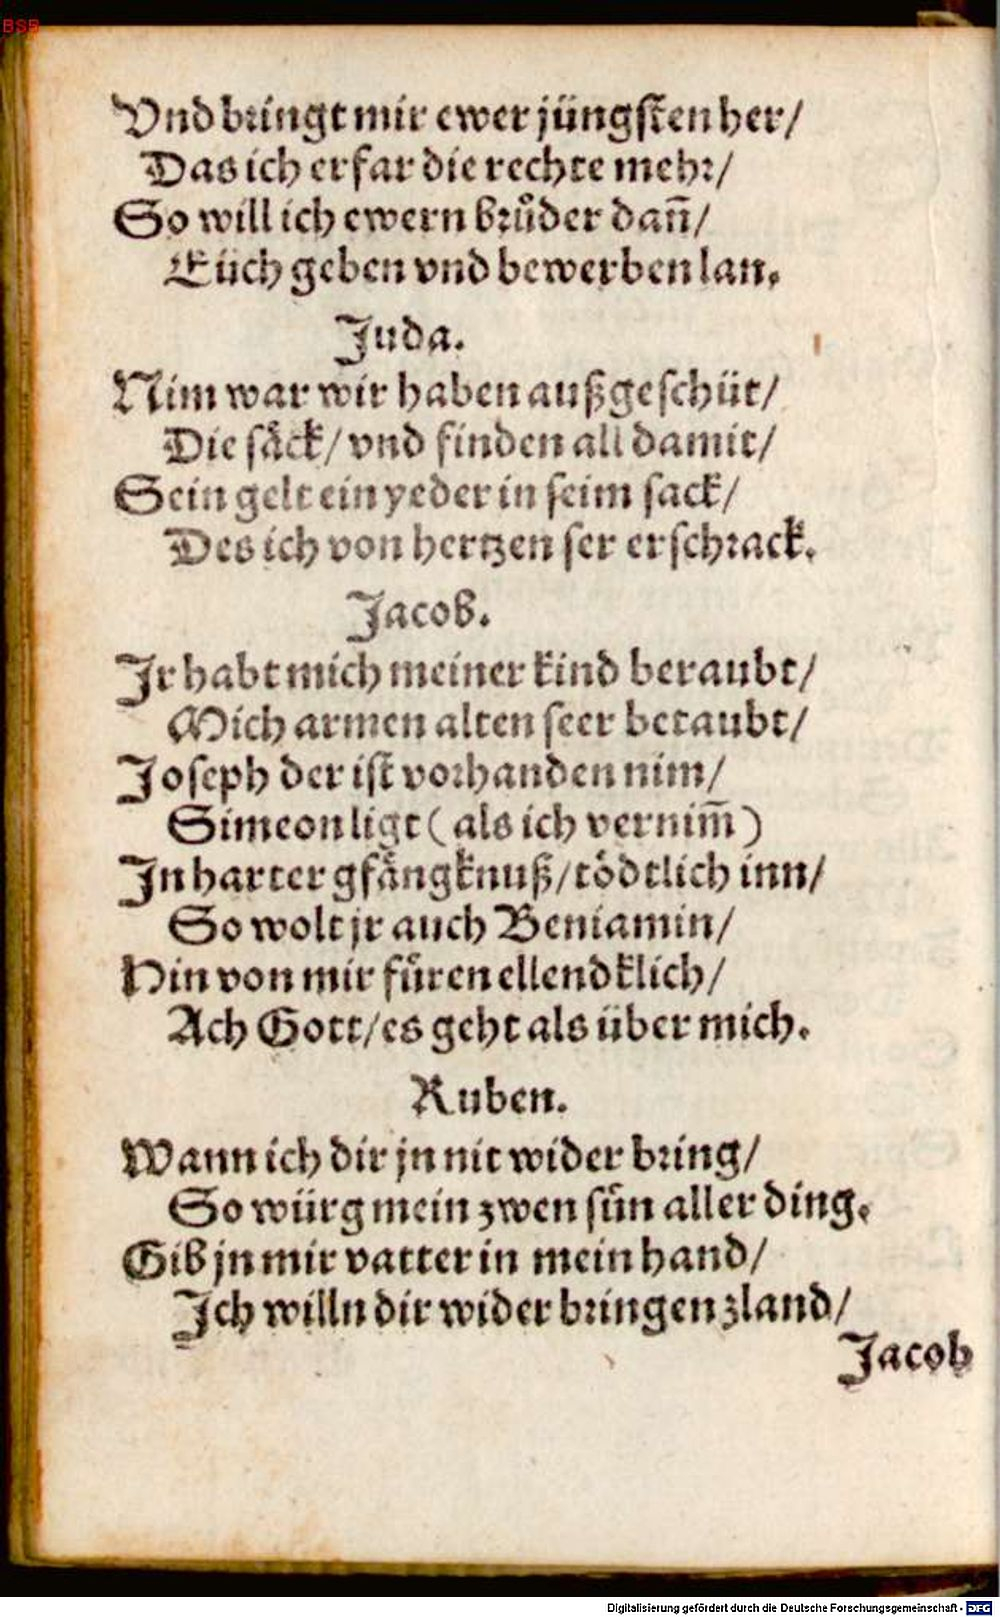 BSB
Vnd bringt mir ewer jüngsten her/
Das ich erfar die rechte mehr/
So will ich ewern brůder dañ/
Eüch geben vnd bewerben lan.
Juda.
Nim war wir haben außgeschüt/
Die såck/ vnd finden all damit/
Sein gelt ein yeder in seim sack/
Des ich von hertzen ser erschrack.
Jacob.
Jr habt mich meiner kind beraubt/
Mich armen alten seer betaubt/
Joseph der ist vorhanden nim/
Simeon ligt (als ich vernim̃)
Jn harter gfångknuß/ tödtlich inn/
So wolt jr auch Beniamin/
Hin von mir fůren ellendklich/
Ach Gott/ es geht als über mich.
Ruben.
Wann ich dir jn nit wider bring/
So würg mein zwen sün aller ding.
Gib jn mir vatter in mein hand/
Jch willn dir wider bringen zland/
Jacob
Digitalisierung gefördert durch die Deutsche Forschungsgemeinschaft - DFG